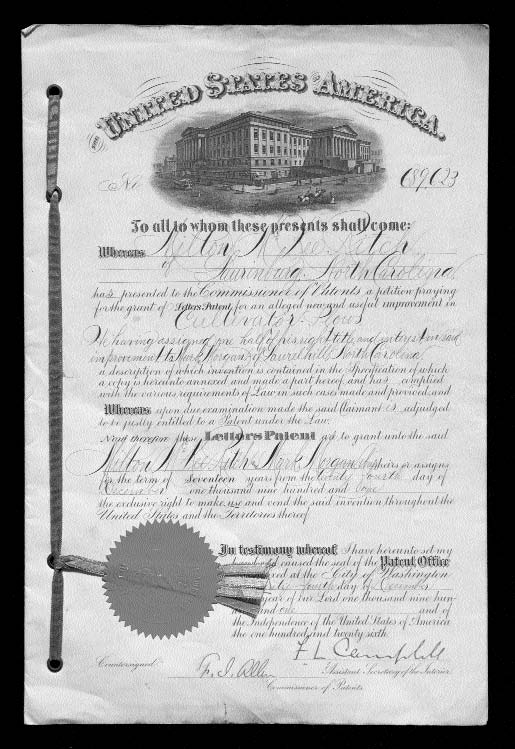 THE UNITED STATES OF AMERICA.
No 689,023
To all to whom these presents shall come:
Whereas Milton McRee
of Laurinburg, North Carolina,
has presented to the Commissioner of Patents a petition praying
for the grant of Letters Patent for an alleged new and useful improvement in
Cultivator-Plows
he having assigned one half of his right title and interest in said
improvement to Mark Morgan, of Laurelhill, North Carolina,
a description of which invention is contained in the Specification of which
a copy is hereunto annexed and made a part hereof, and has complied
with the various requirements of Law in such cases made and provided, and
Whereas upon due examination made the said Claimant is adjudged
to be justly entitled to a Patent under the Law.
Now therefore these Letters Patent are to grant unto the said
Milton McRee Mark Morgan, their heirs or assigns
for the term of Seventeen years from the twenty fourth day of
December one thousand nine hundred and one
the exclusive right to make, use and vend the said invention throughout the
United States and the Territories thereof.
In testimony whereof I have hereunto set my
hand and caused the seal of the Patent Office
affixed at the City of Washington
fourth day of December
year of our Lord one thousand nine hun-
and one and of
the Independence of the United States of America
the one hundred and twenty sixth.
F. L. Campbell
Countersigned F. I. Allen Assistant Secretary of the Interior.
Commissioner of Patents.